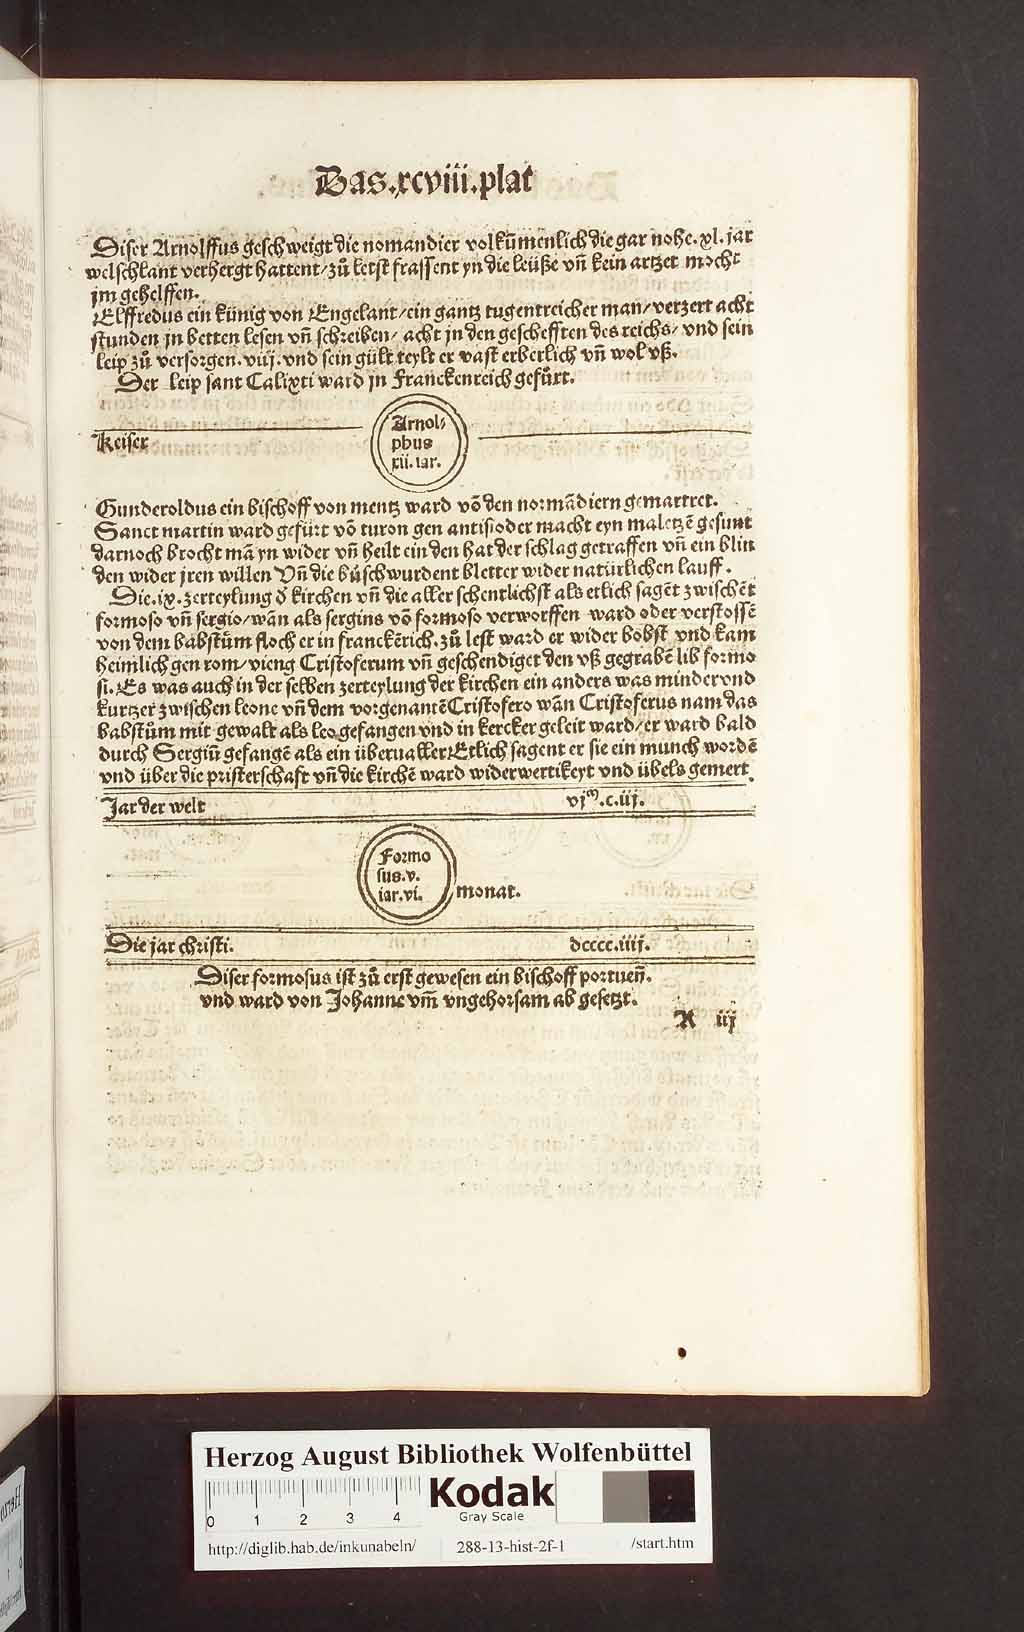 Das.xcviii.plat
Diser Arnolffus geschweigt die nomandier volkūmenlich die gar nohe.xl.jar
welschlant verhergt hattent/zů letst frassent yn die leüße vn̄ kein artzet mocht
jm gehelffen.
Elffredus ein künig von Engelant/ein gantz tugentreicher man/verzert acht
stunden jn betten lesen vn̄ schreiben/ acht jn den geschefften des reichs/ vnd sein
leip zů versorgen.viij.vnd sein gült teylt er vast erberlich vn̄ wol vß.
Der leip sant Calixti ward jn Franckenreich gefůrt.
Keiser
Arnol⸗
phus
xii.iar.
Gunderoldus ein bischoff von mentz ward vō den normādiern gemartret.
Sanct martin ward gefürt vō turon gen antisioder macht eyn maletzē gesunt
darnoch brocht mā yn wider vn̄ heilt ein den hat der schlag getraffen vn̄ ein blin
den wider jren willen Vn̄ die büsch wurdent bletter wider natürlichen lauff.
Die.ix.zerteylung d̄ kirchen vn̄ die aller schentlichst als etlich sagēt zwischēt
formoso vn̄ sergio/wān als sergius vō formoso verworffen ward oder verstossē
von dem babstům floch er in franckērich.zů lest ward er wider bobst vnd kam
heimlich gen rom/vieng Cristoferum vn̄ geschendiget den vß gegrabē lib formo
si.Es was auch in der selben zerteylung der kirchen ein anders was minder vnd
kurtzer zwischen leone vn̄ dem vorgenantē Cristofero wān Cristoferus nam das
babstům mit gewalt als leo gefangen vnd in kercker geleit ward/er ward bald
durch Sergiū gefangē als ein überualler Etlich sagent er sie ein munch wordē
vnd über die pristerschaft vn̄ die kirchē ward widerwertikeyt vnd übels gemert.
Jar der welt vjᵐ.c.iij.
Formo
sus.v.
iar.vi. monat.
Die jar christi. dcccc.iiij.
Diser formosus ist zů erst gewesen ein bischoff portuen̄.
vnd ward von Johanne vm̄ vngehorsam ab gesetzt.
R iij
Herzog August Bibliothek Wolfenbüttel
0 1 2 3 4
Kodak
Gray Scale
http://diglib.hab.de/inkunabeln/ 288-13-hist-2f-1 /start.htm